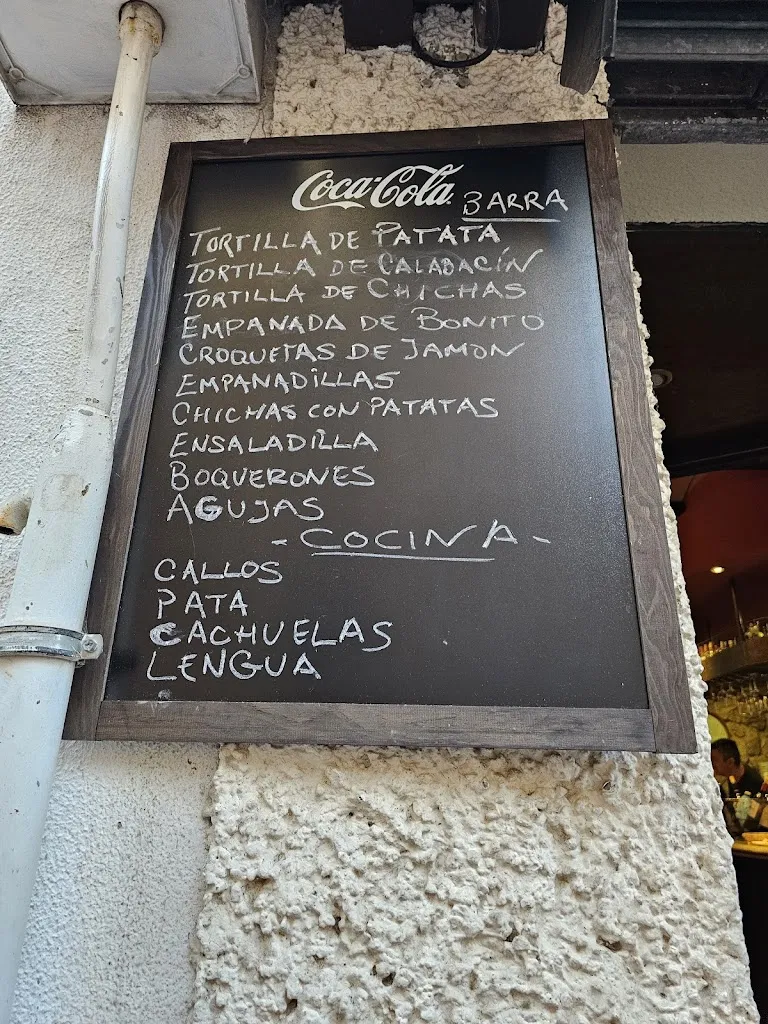 Coca-Cola BARRA
TORTILLA DE PATATA
TORTILLA DE CALABACÍN
TORTILLA DE CHICHAS
EMPANADA DE BONITO
CROQUETAS DE JAMON
EMPANADILLAS
CHICHAS CON PATATAS
ENSALADILLA
BOQUERONES
AGUJAS
- COCINA -
CALLOS
PATA
CACHUELAS
LENGUA